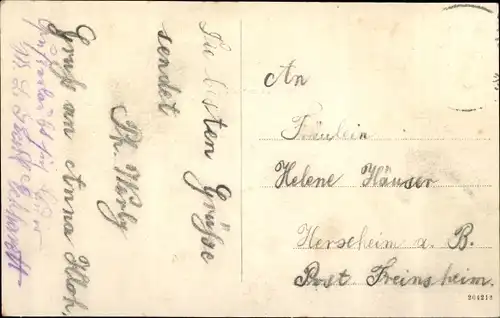 Die besten Grüße
sendet
Ph. Werly
Gruß an Anna Kloh,
An
Fräulein
Helene Häuser
Herxheim a. B.
Post Freinsheim.
204213